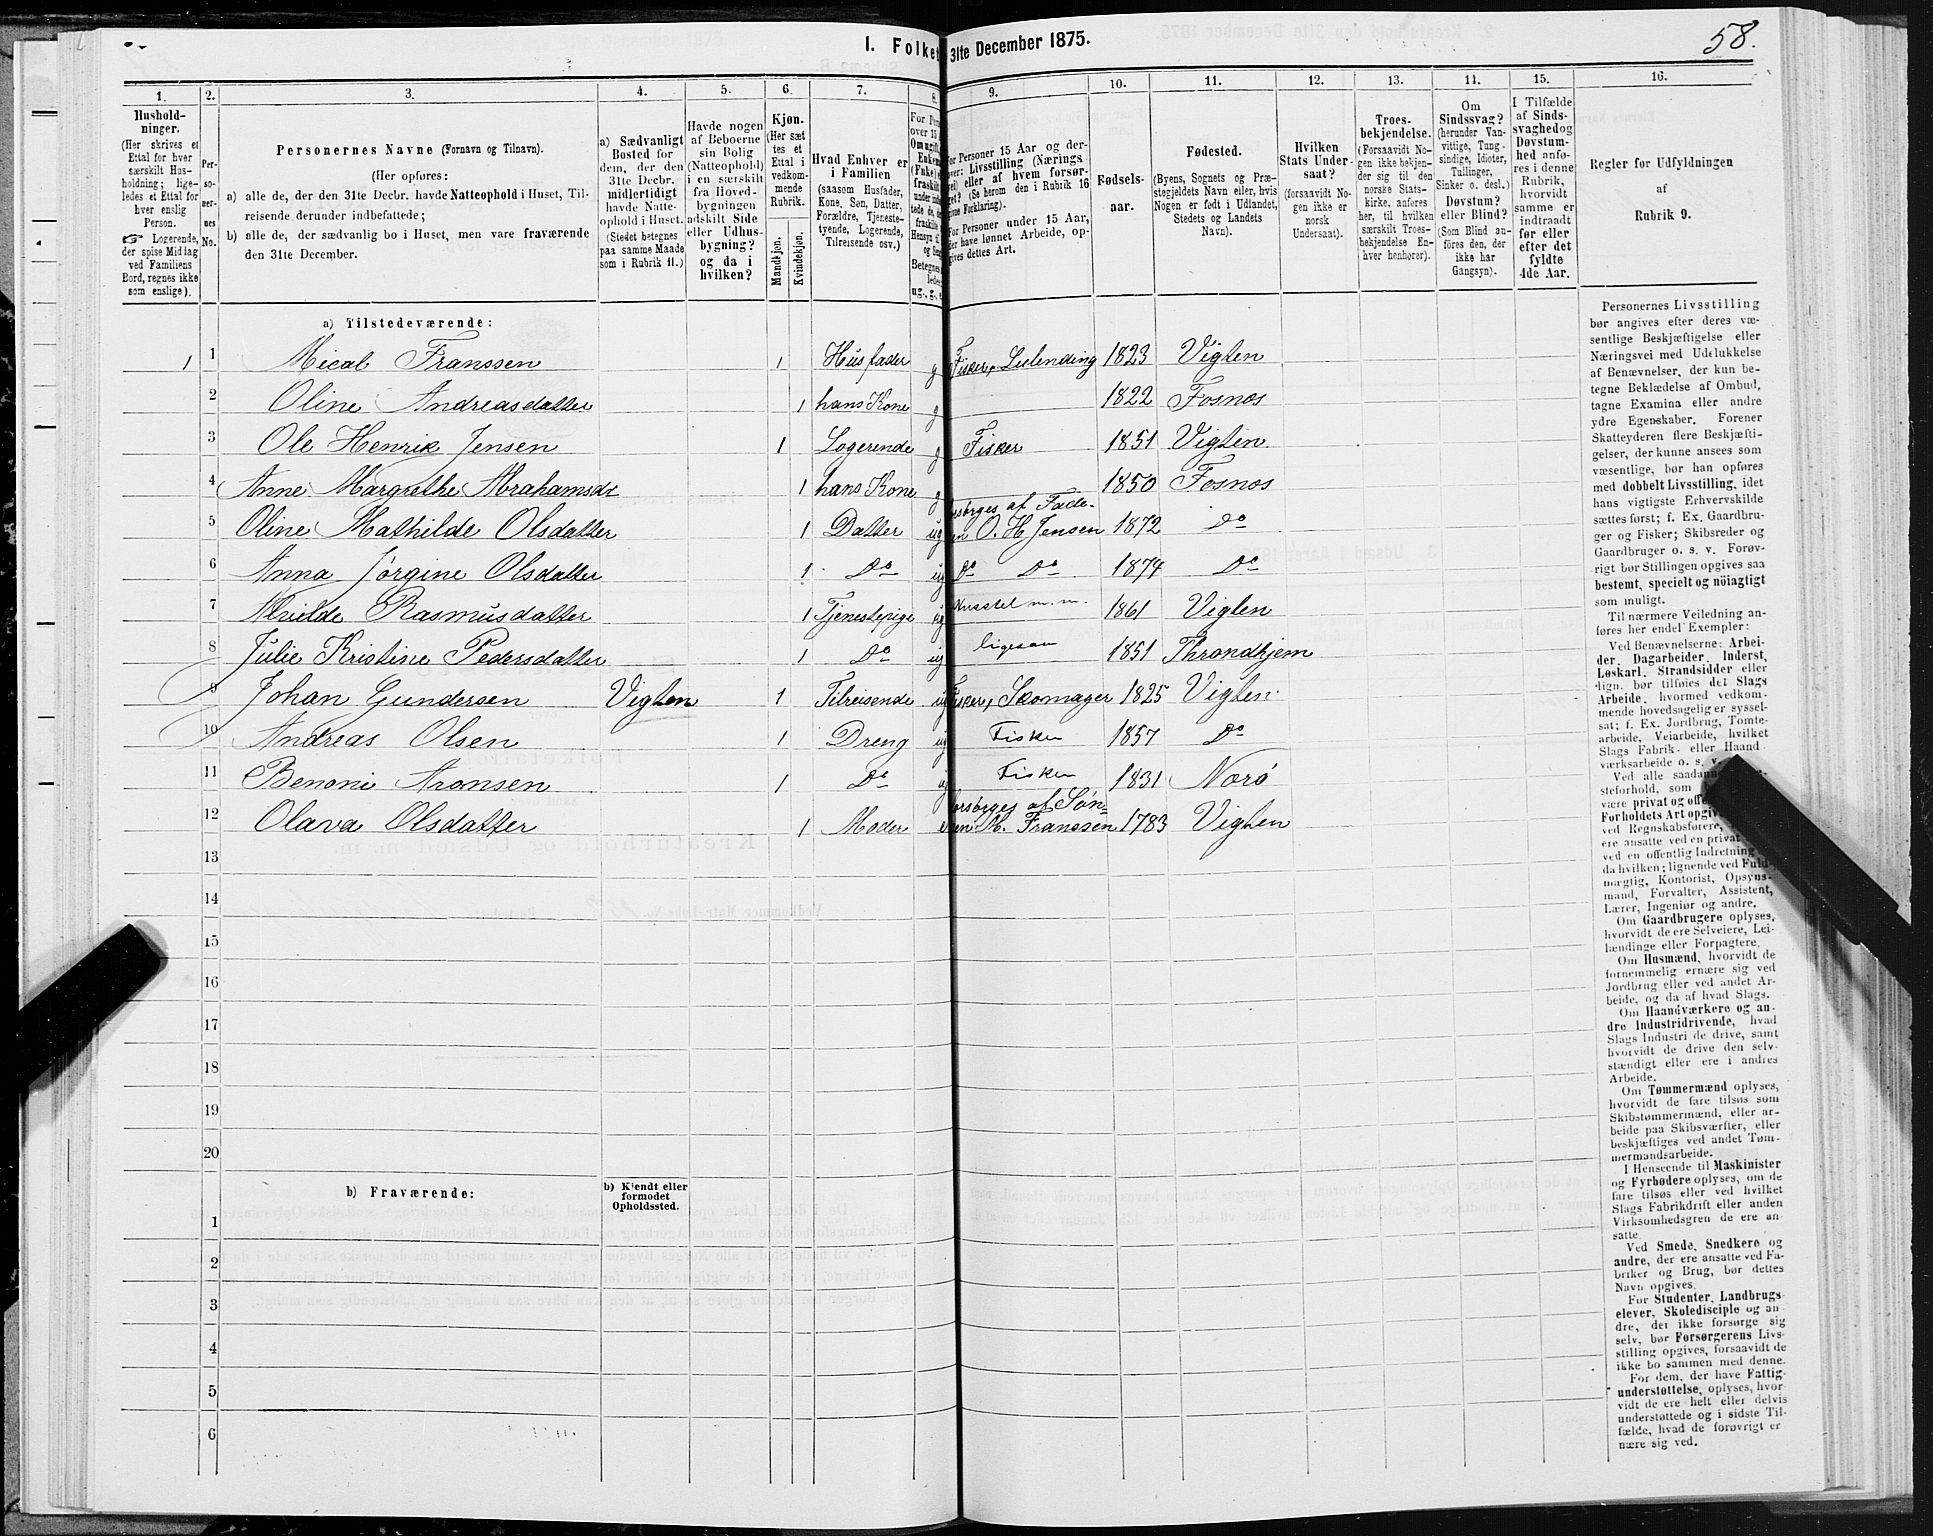 58.
I. Folket
31te December 1875.
1.
2.
3.
4.
5.
6.
7.
8.
9.
10.
11.
12.
13.
14.
15.
16.
Hushold-
ninger.
(Her skrives et
Ettal for hver
særskilt Hus-
holdning; lige-
ledes et Ettal for
hver enslig
Person.
☞ Logerende,
der spise Middag
ved Familiens
Bord, regnes ikke
som enslige).
Per-
so-
ner-
nes
No.
Personernes Navne (Fornavn og Tilnavn).
(Her opføres:
a) alle de, der den 31te Decbr. havde Natteophold i Huset, Til-
reisende derunder indbefattede;
b) alle de, der sædvanlig bo i Huset, men vare fraværende
den 31te December.
a) Sædvanligt
Bosted for
dem, der den
31te Decbr.
midlertidigt
havde Natte-
ophold i Huset.
(Stedet betegnes
paa samme Maade
som i Rubrik 11.)
Havde nogen
af Beboerne
sin Bolig
(Natteophold)
i en særskilt
fra Hoved-
bygningen
adskilt Side
eller Udhus-
bygning?
og da i
hvilken?
Kjøn.
(Her sæt
tes et
Ettal i
vedkom-
mende
Rubrik.
Mandkjøn.
Kvindekjøn.
Hvad Enhver er
i Familien
(saasom Husfader,
Kone, Søn, Datter,
Forældre, Tjeneste-
tyende, Logerende,
Tilreisende osv.)
For Pers
over 15 A
Omgift,
Enkem
(Fuke) e
fraskilt
For Personer 15 Aar og der-
over: Livsstilling (Nærings
vei) eller af hvem forsør-
get? (Se herom den i Rubrik 16
givne Forklaring).
For Personer under 15 Aar,
der have lønnet Arbeide, op-
gives dettes Art.
Fødsels-
aar.
Fødested.
(Byens, Sognets og Præ-
stegjeldets Navn eller, hvis
Nogen er født i Udlandet,
Stedets og Landets
Navn).
Hvilken
Stats Under-
saat?
(forsaavidt No-
gen ikke er
norsk
Undersaat).
Troes-
bekjendelse.
(Forsaavidt No-
gen ikke bekjen-
der sig til den
norske Stats-
kirke, anføres
her, til hvilken
særskilt Troes-
bekjendelse En-
hver henhører).
Om
Sindssvag?
(herunder Van-
vittige, Tung-
sindige, Idioter,
Tullinger,
Sinker o. desl.)
Døvstum?
eller Blind?
(Som Blind an-
føres den, der
ikke har
Gangsyn).
I Tilfælde
af Sinds-
svaghedog
Døvstum-
hed anfø-
res i denne
Rubrik,
hvorvidt
samme er
indtraadt
før eller
efter det
fyldte
4de Aar.
Regler for Udfyldningen
af
Rubrik 9.
a) Tilstedeværende:
1 1 Mical Franssen 1 Husfader g Fisker, Leilending 1823 Vigten
2 Oline Andreasdatter 1 hans Kone g 1822 Fosnos
3 Ole Henrik Jensen 1 Logerende g Fisker 1851 Vigten
4 Anne Margrethe Abrahamsdr 1 hans Kone g 1850 Fosnos
5 Oline Mathilde Olsdatter 1 Datter ug forsørges af Fade-
ren O. H. Jensen 1872 Do
6 Anna Jørgine Olsdatter 1 Do ug Do Do 1874 Do
7 Rasmusdatter 1 Tjenestepige ug Husstel m. m. 1861 Vigten
8 Julie Kristine Pedersdatter 1 Do ug ligesaa 1851 Throndhjem
9 Johan Gundersen Vigten 1 Tilreisende ug Fisker, Skomager 1825 Vigten
10 Andreas Olsen 1 Dreng ug Fisker 1857 Do
11 Benoni Aronsen 1 Do ug Fisker 1831 Nærø
12 Olava Olsdatter 1 Moder e forsørges af Søn-
nen M. Franssen 1783 Vigten
13
14
15
16
17
18
19
20
b) Fraværende:
b) Kjendt eller
formodet
Opholdssted.
1
2
3
4
5
6
Personernes Livsstilling
bør angives efter deres væ-
sentlige Beskjæftigelse eller
Næringsvei med Udelukkelse
af Benævnelser, der kun be-
tegne Beklædelse af Ombud,
tagne Examina eller andre
ydre Egenskaber. Forener
Skatteyderen flere Beskjæfti-
gelser, der kunne ansees som
væsentlige, bør han opføres
med dobbelt Livsstilling, idet
hans vigtigste Erhvervskilde
sættes først; f. Ex. Gaardbru-
ger og Fisker; Skibsreder og
Gaardbruger o. s. v. Forøv-
rigt bør Stillingen opgives saa
bestemt, specielt og nøiagtigt
som muligt.
Til nærmere Veiledning an-
føres her endel Exempler:
Ved Benævnelserne: Arbei-
der, Dagarbeider, Inderst,
Løskarl, Strandsidder eller
lign. bør tilføies det Slags
Arbeide, hvormed vedkom-
mende hovedsagelig er syssel-
sat; f. Ex. Jordbrug, Tomte-
arbeide, Veiarbeide, hvilket
Slags Fabrik- eller Haand-
værksarbeide o. s. v.
Ved alle saadanne
steforhold, som
være privat og off
Forholdets Art opgiv
ved Regnskabsførere,
ere ansatte ved en privat
ved en offentlig Indretning
da hvilken; lignende ved Fuld-
mægtig, Kontorist, Opsyns-
mand, Forvalter, Assistent,
Lærer, Ingeniør og andre.
Om Gaardbrugere oplyses,
hvorvidt de ere Selveiere, Lei-
lændinge eller Forpagtere.
Om Husmænd, hvorvidt de
fornemmelig ernære sig ved
Jordbrug eller ved andet Ar-
beide, og da af hvad Slags.
Om Haandværkere og an-
dre Industridrivende, hvad
Slags Industri de drive, samt
hvorvidt de drive den selv-
stændigt eller ere i andres
Arbeide.
Om Tømmermænd oplyses,
hvorvidt de fare tilsøs som
Skibstømmermænd, eller ar-
beide paa Skibsværfter, eller
beskjæftiges ved andet Tøm-
mermandsarbeide.
I Henseende til Maskinister
og Fyrbødere oplyses, om de
fare tilsøs eller ved hvilket
Slags Fabrikdrift eller anden
Virksomhedsgren de ere an-
satte.
Ved Smede, Snedkere og
andre, der ere ansatte ved Fa-
briker og Brug, bør dettes
Navn opgives.
For Studenter, Landbrugs-
elever, Skoledisciple og an-
dre, der ikke forsørge sig
selv, bør Forsørgerens Livs-
stilling opgives, forsaavidt de
ikke bo sammen med denne.
For dem, der have Fattig-
understøttelse, oplyses, hvor-
vidt de ere helt eller delvis
understøttede og i sidste Til-
fælde, hvad de forøvrigt er
nære sig ved.